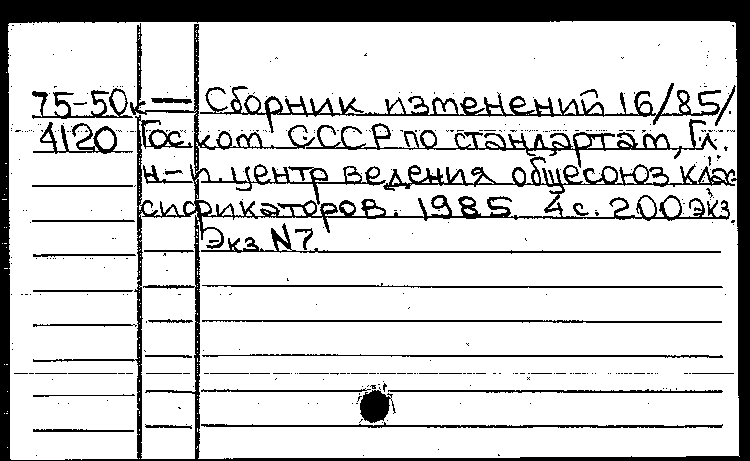 75-50к — Сборник изменений 16/85/
4120 Гос. ком. СССР по стандартам, Гл.
н.-и. центр ведения общесоюз. клас
сификаторов. 1985. 4 с. 200 экз.
Экз. N7.